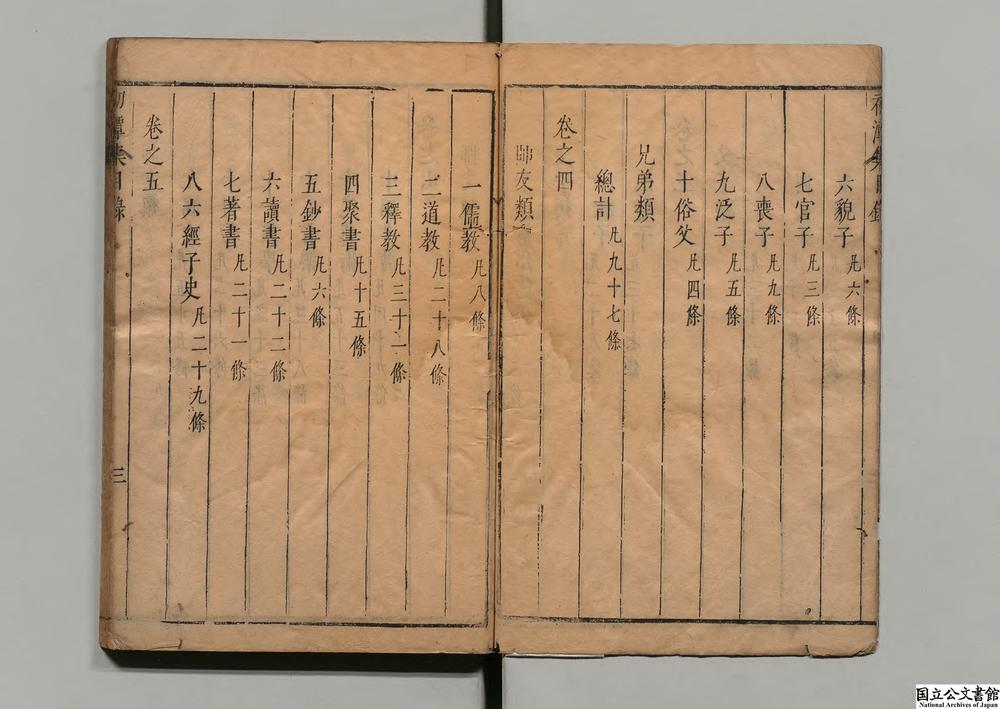 六貌子 凡六條
七官子 凡三條
八喪子 凡九條
九泛子 凡五條
十俗父 凡四條
兄弟類子
總計 凡九十七條
卷之四
師友類
一儒教 凡八條
二道教 凡二十八條
三釋教 凡三十一條
四聚書 凡十五條
五鈔書 凡六條
六讀書 凡二十二條
七著書 凡二十一條
八六經子史 凡二十九條
卷之五
初潭集目錄
三
国立公文書館
National Archives of Japan